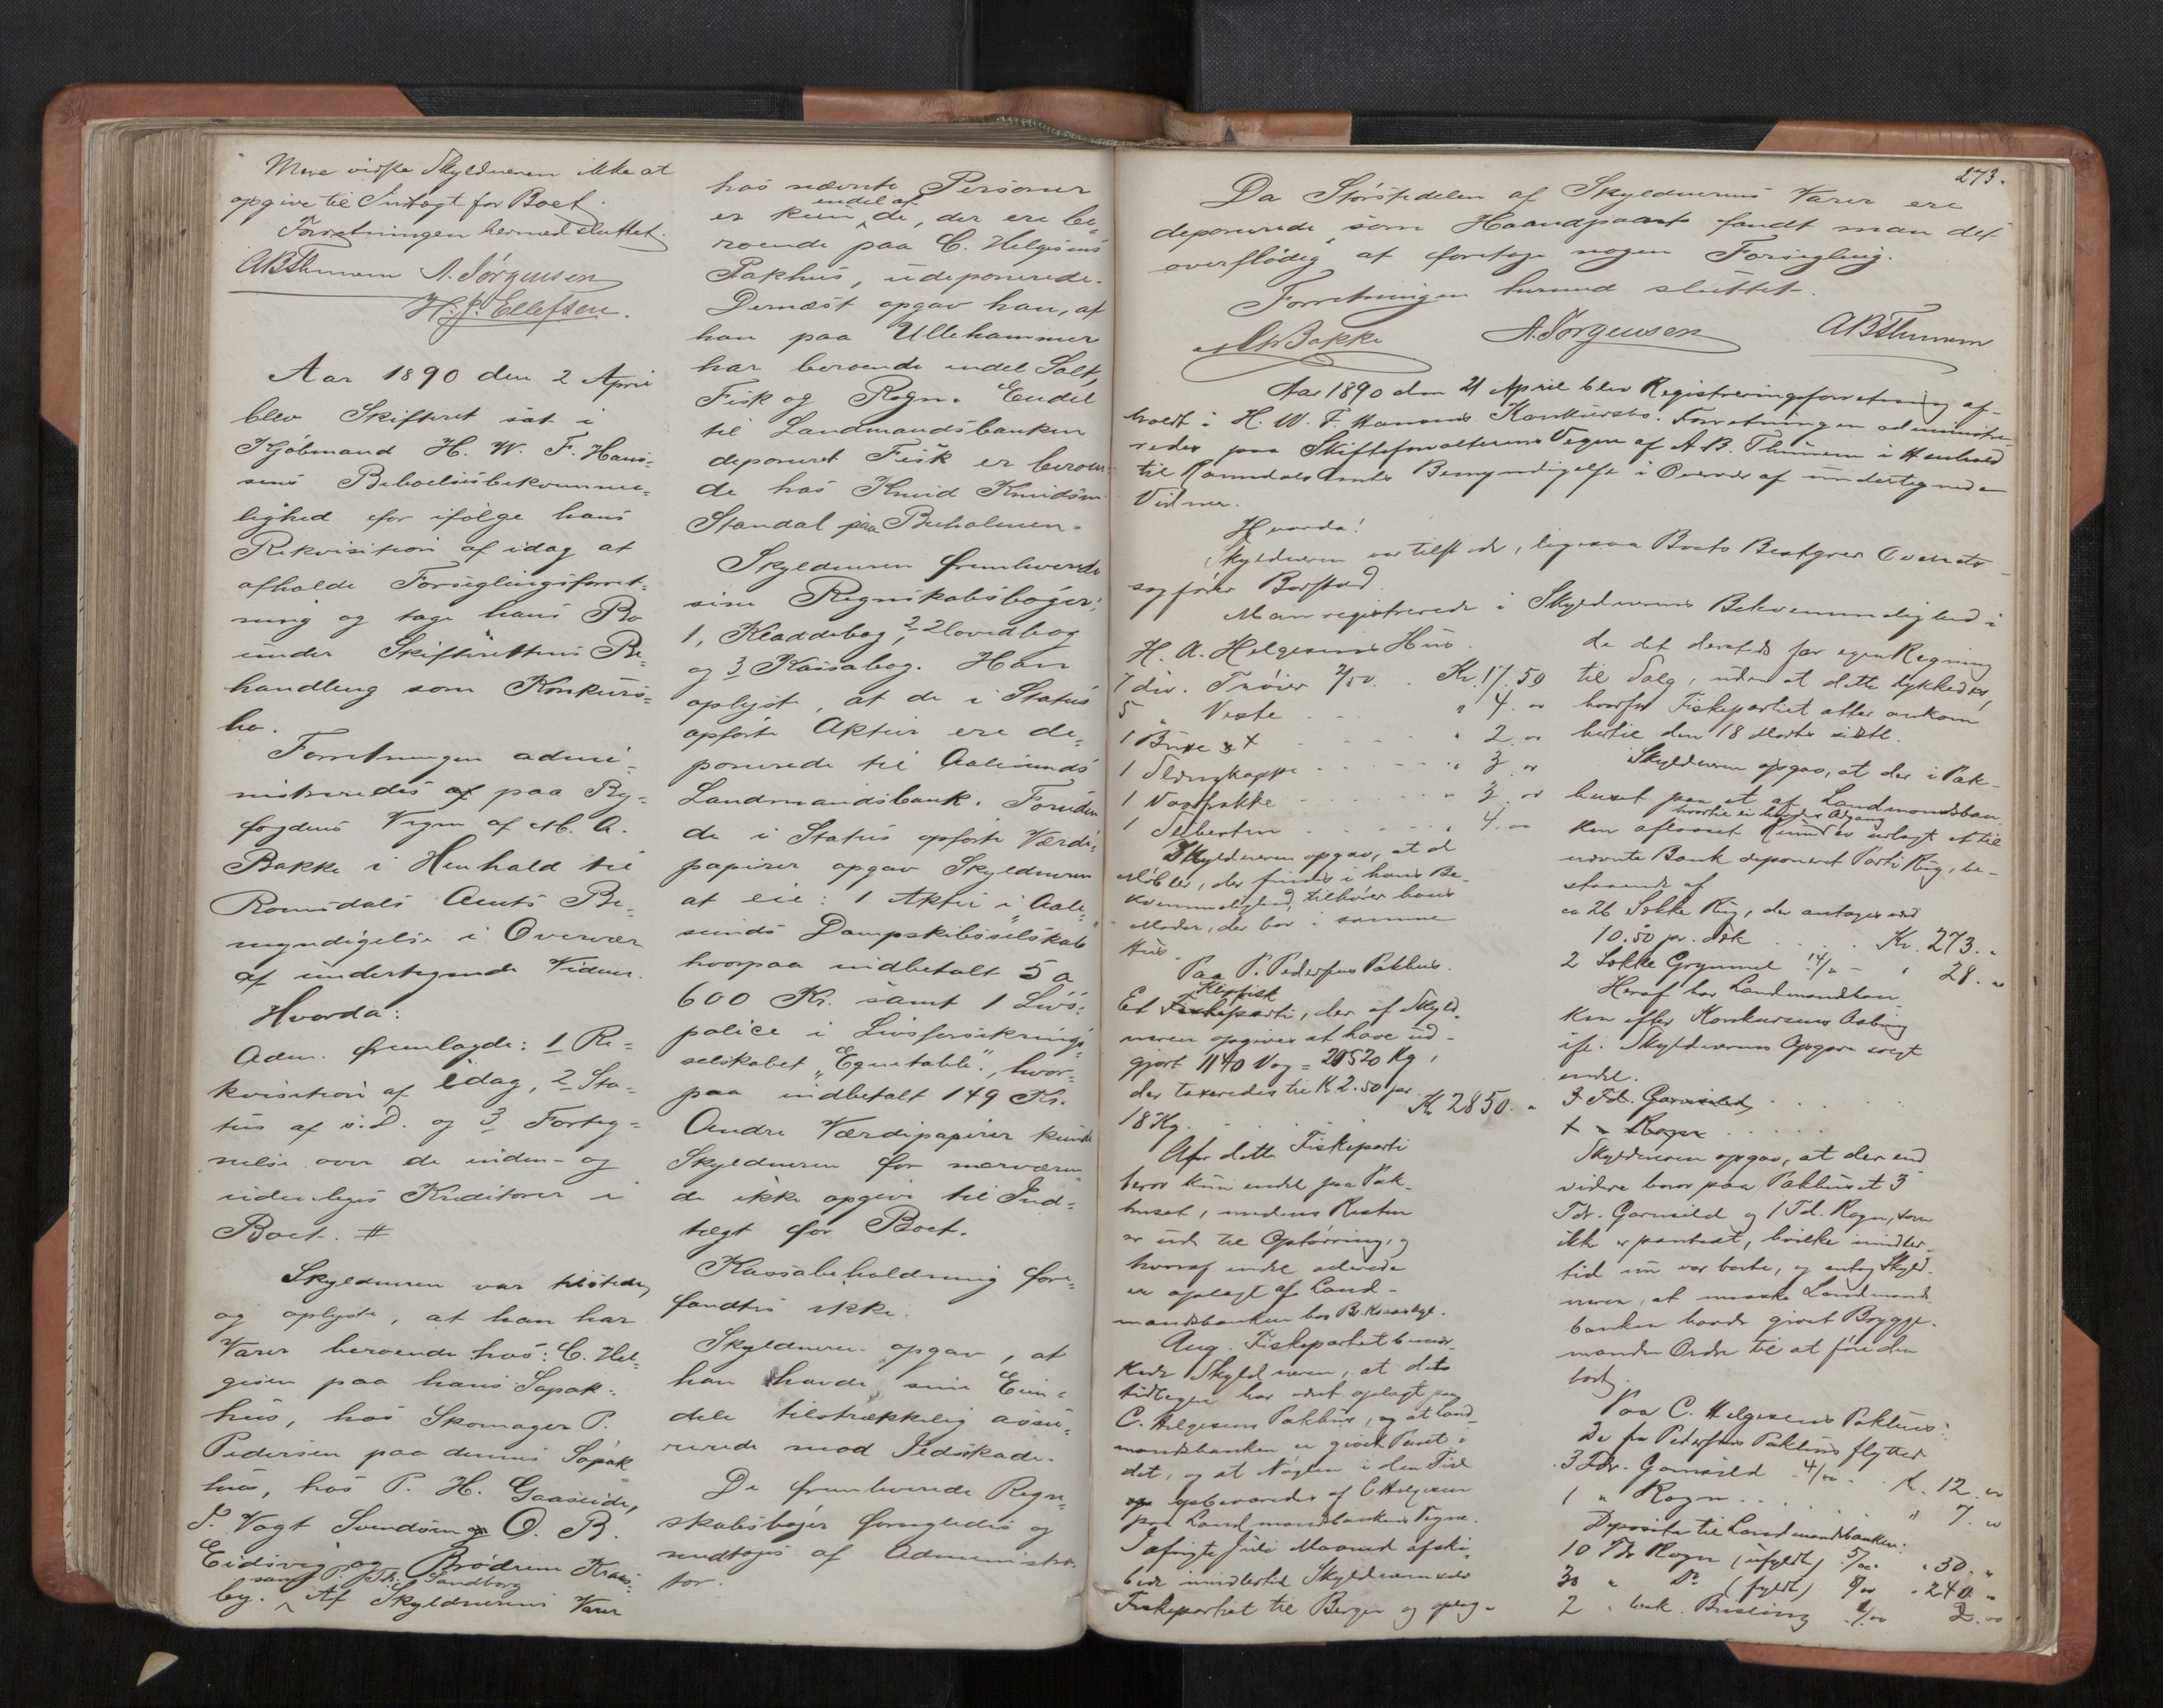 Mere vidste Skyldneren ikke at
opgive til Indtægt for Boet.
Forretningen hermed sluttet.
ABThunem A. Jørgensen
H. J. Ellefsen.
Aar 1890 den 2 April
blev Skifteret sat i
Kjøbmand H. W. F. Han=
sens Beboelsesbekvemme=
lighed for ifølge hans
Rekvisition af idag at
afholde Forseglingsforret=
ning og tage hans Bo
under Skifterettens Be=
handling som Konkurs=
bo.
Forretningen admi=
nistreredes af paa By=
fogdens Vegne af M. A.
Bakke i Henhold til
Romsdals Amts Be=
myndigelse i Overvær
af undertegnede Vidner.
Hvorda:
Adm. fremlagde: 1 Re=
kvisition af idag, 2 Sta=
tus af s. D. og 3 Forteg=
nelse over de inden- og
udenbyes Kreditorer i
Boet. #
Skyldneren var tilstede,
og oplyste, at han har
Varer beroende hos: C. Hel=
gesen paa hans Søpak=
hus, hos Skomager P.
Pedersen paa dennes Søpak
hus, hos P. H. Gaaseide,
J. Vogt Svendsen og O. B.
Eidsvig og Brødrene Kraas=
samt P. Thr. Sandborg
by. ^ Af Skyldnerens Varer
hos nævnte Personer
endel af
er kun ^ de, der ere be=
roende paa C. Helgesens
Pakhus, udeponerede.
Dernæst opgav han, at
han paa Ullehammer
har beroende endel Salt,
Fisk og Rogn. Endel
til Landmandsbanken
deponeret Fisk er beroen=
de hos Knud Knudsen
Standal paa Buholmen.
Skyldneren fremleverede
sine Regnskabsbøger:
1, Kladdebog, 2 Hovedbog
og 3 Kassabog. Han
oplyste, at de i Status
opførte Aktier ere de=
ponerede til Aalesunds
Landmandsbank. Foruden
de i Status opførte Værdi=
papirer opgav Skyldneren
at eie: 1 Aktie i "Aale=
sunds Dampskibsselskab"
hvorpaa indbetalt 5 a
600 Kr. samt 1 Livs=
police i Livsforsikrings=
selskabet "Equetable", hvor=
paa indbetalt 149 Kr.
Andre Værdipapirer kunde
Skyldneren for nærværen=
de ikke opgive til Ind=
tægt for Boet.
Kassabeholdning fore=
fandtes ikke.
Skyldneren opgav, at
han havde sine Eien=
dele tilstrækkelig assu=
rerede mod Ildskade.
De fremleverede Regn=
skabsbøger forsegledes og
medtoges af Administra=
tor.
273.
Da Størstedelen af Skyldnerens Varer ere
deponerede som Haandpant fandt man det
overflødig at foretage nogen Forsegling.
Forretningen hermed sluttet.
MABakke A. Jørgensen ABThunem
Aar 1890 den 21 April blev Registreringsforretning af=
holdt i H. W. F. Hansens Konkursbo. Forretningen administre=
redes paa Skifteforvalterens Vegne af A. B. Thunem i Henhold
til Romsdals Amts Bemyndigelse i Overvær af undertegnede
Vidner.
Hvorda!
Skyldneren var tilstede, ligesaa Boets Bestyrer Overrets=
sagfører Barstad.
Man registrerede i Skyldnerens Bekvemmelighed i
H. A. Helgesens Hus.
7 div. Trøier 2/50. Kr. 17.50
5 " Veste " 4. "
1 Buxe " 2. "
1 " 3. "
1 Vaatfrakke " 3. "
1 " 4. "
Skyldneren opgav, at de
Møbler, der findes i hans Be=
kvemmelighed, tilhører hans
Moder, der bor i samme
Hus.
Paa P. Pedersens Pakhus.
Klipfisk
Et Fiskeparti, der af Skyld=
neren opgives at have ud=
gjort 1140 Vog = 20520 Kg,
der taxeredes til Kr 2.50 per
18 Kg. Kr 2850. "
Af dette Fiskeparti
beror kun endel paa Pak=
huset, medens Resten
er ude til Optørring, og
hvoraf endel allerede
er oplagt af Land=
mandsbanken hos Br. Kraasbye.
Ang. Fiskepartiet bemær=
kede Skyldneren, at dets
tidligere har været oplagt paa
C. Helgesens Pakhus, og at Land=
mandsbanken er givet Pant i
det, og at Nøglen i den Tid
opbevaredes af C Helgesen
paa Landmandsbankens Vegne.
I afvigte Juli Maaned afski=
bede imidlertid Skyldneren
Fiskepartiet til Bergen og oplag=
de det dersteds for egen Regning
til Salg, uden at dette lykkedes,
hvorfor Fiskepartiet atter ankom
hertil den 18 Marts sidstl.
Skyldneren opgav, at der i Pak=
huset paa et af Landmandsban=
hvortil ei havdes Adgang
ken aflaaset Rum er oplagt et til
nævnte Bank deponeret Parti Rug, be=
staaende af
ca 26 Sække Rug, der antages værd
10.50 pr. Sæk Kr. 273. "
2 Sække Grynmel 14/" " 28. "
Heraf har Landmandsban=
ken efter Konkursens Aabning
ifl. Skyldnerens Opgave solgt
endel.
3 Td. Garnsild
1 " Rogn
Skyldneren opgav, at der end=
videre beror paa Pakhuset 3
Tdr. Garnsild og 1 Td. Rogn, som
ikke er pantsat, hvilke imidler=
tid nu var borte, og antog Skyld=
neren, at maaske Landmands=
banken havde givet Brygge=
manden Ordre til at føre den
bort.
Paa C. Helgesens Pakhus:
De fra Pedersens Pakhus flyttede
3 Tdr. Garnsild 4/00 K. 12. "
1 " Rogn " 7. "
Deposita til Landmandsbanken:
10 Tdr Rogn (ufyldt) 5/00 " 50. "
30 " Do (fyldt) 8/00 " 240. "
2 " Brisling 1/00 2. "